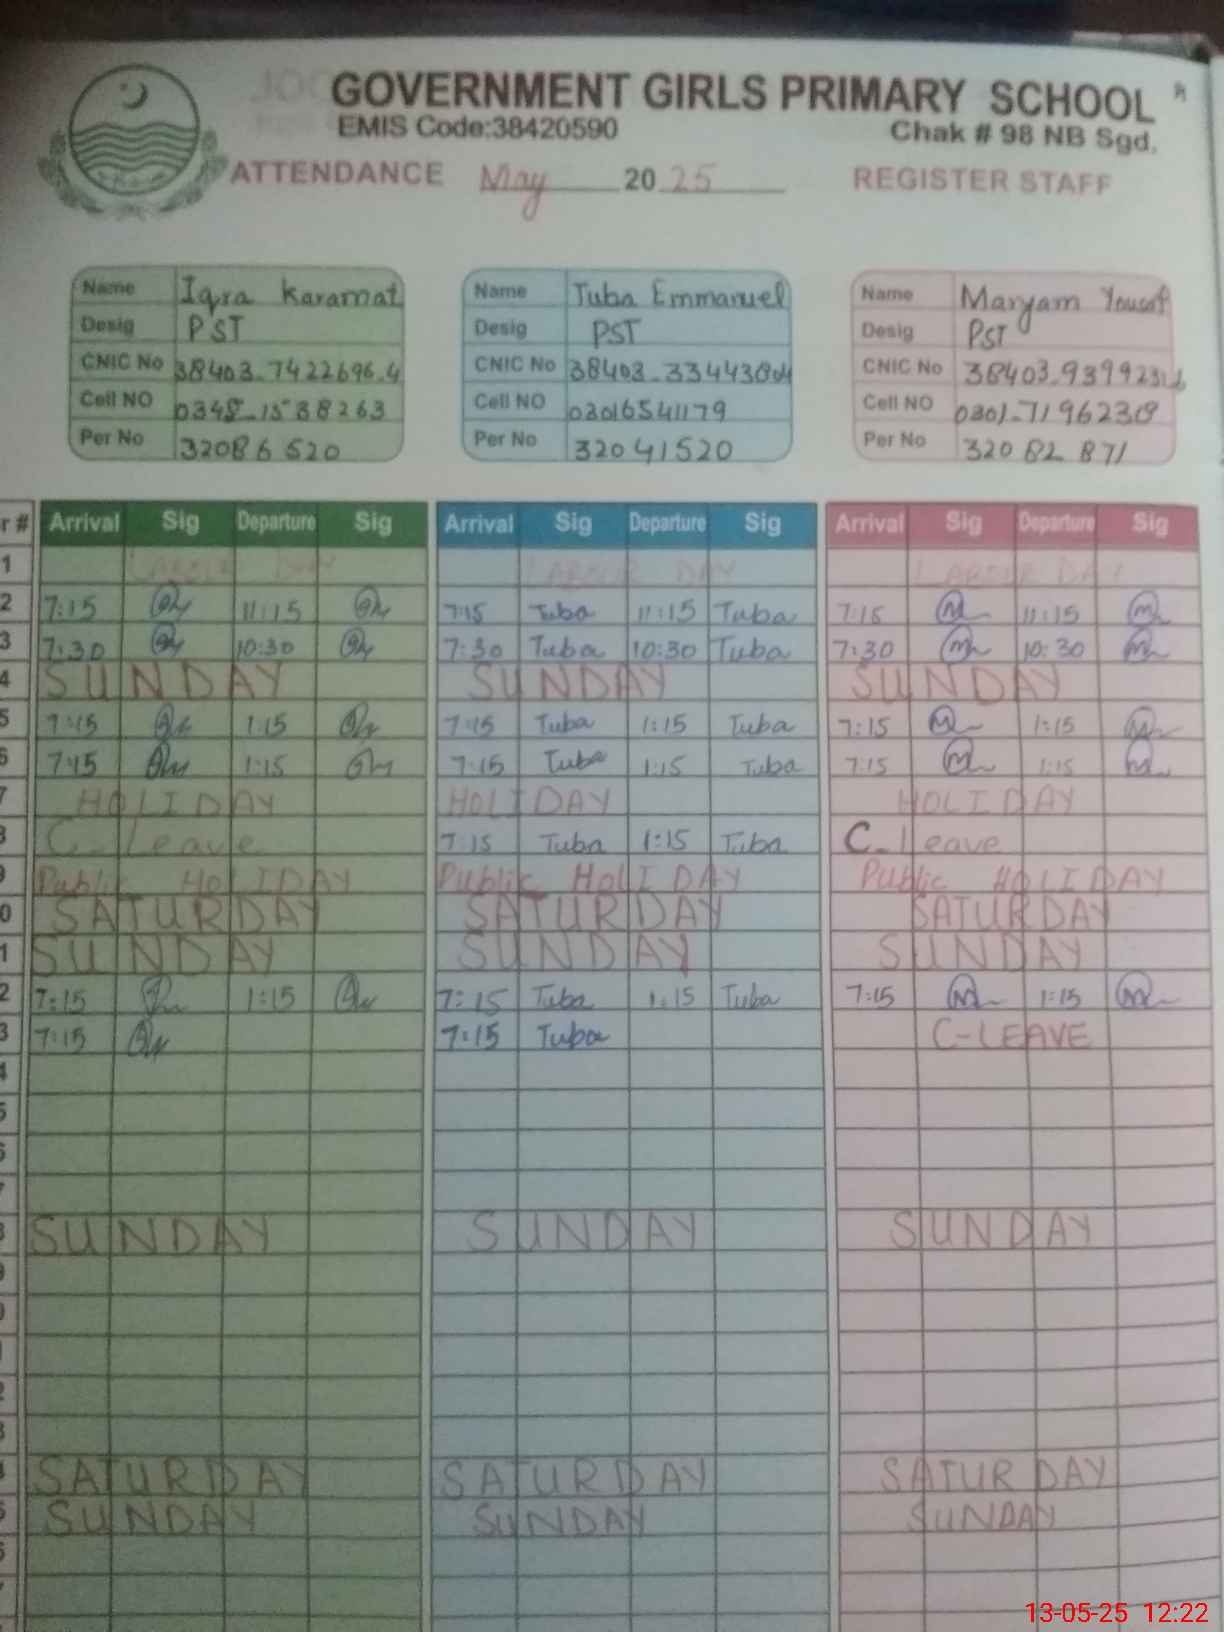 GOVERNMENT GIRLS PRIMARY SCHOOL
EMIS Code:38420590 Chak # 98 NB Sgd,
ATTENDANCE May 2025 REGISTER STAFF
Name Iqra Karamat Name Tuba Emmanuel Name Maryam Yousaf
Desig PST Desig PST Desig PST
CNIC No 38403-7422696-4 CNIC No CNIC No
Cell NO Cell NO 03016541179 Cell NO
Per No 32086520 Per No 32041520 Per No 32082871
r # Arrival Sig Departure Sig Arrival Sig Departure Sig Arrival Sig Departure Sig
1 LABOUR DAY LABOUR DAY LABOUR DAY
2 7:15 11:15 7:15 Tuba 11:15 Tuba 7:15 11:15
3 7:30 10:30 7:30 Tuba 10:30 Tuba 7:30 10:30
4 SUNDAY SUNDAY SUNDAY
5 7:15 1:15 7:15 Tuba 1:15 Tuba 7:15 1:15
6 7:15 1:15 7:15 Tuba 1:15 Tuba 7:15 1:15
7 HOLIDAY HOLIDAY HOLIDAY
8 C-Leave 7:15 Tuba 1:15 Tuba C-Leave
9 Public HOLIDAY Public HOLIDAY Public HOLIDAY
0 SATURDAY SATURDAY SATURDAY
1 SUNDAY SUNDAY SUNDAY
2 7:15 1:15 7:15 Tuba 1:15 Tuba 7:15 1:15
3 7:15 7:15 Tuba C-LEAVE
4
5
6
7
8 SUNDAY SUNDAY SUNDAY
9
0
1
2
3
4 SATURDAY SATURDAY SATURDAY
5 SUNDAY SUNDAY SUNDAY
6
7
13-05-25 12:22